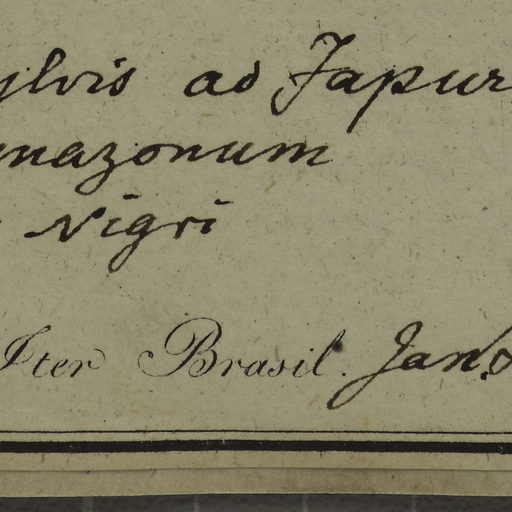 ylvis ad Japur
mazonum
Nigri
Iter Brasil. Jan.